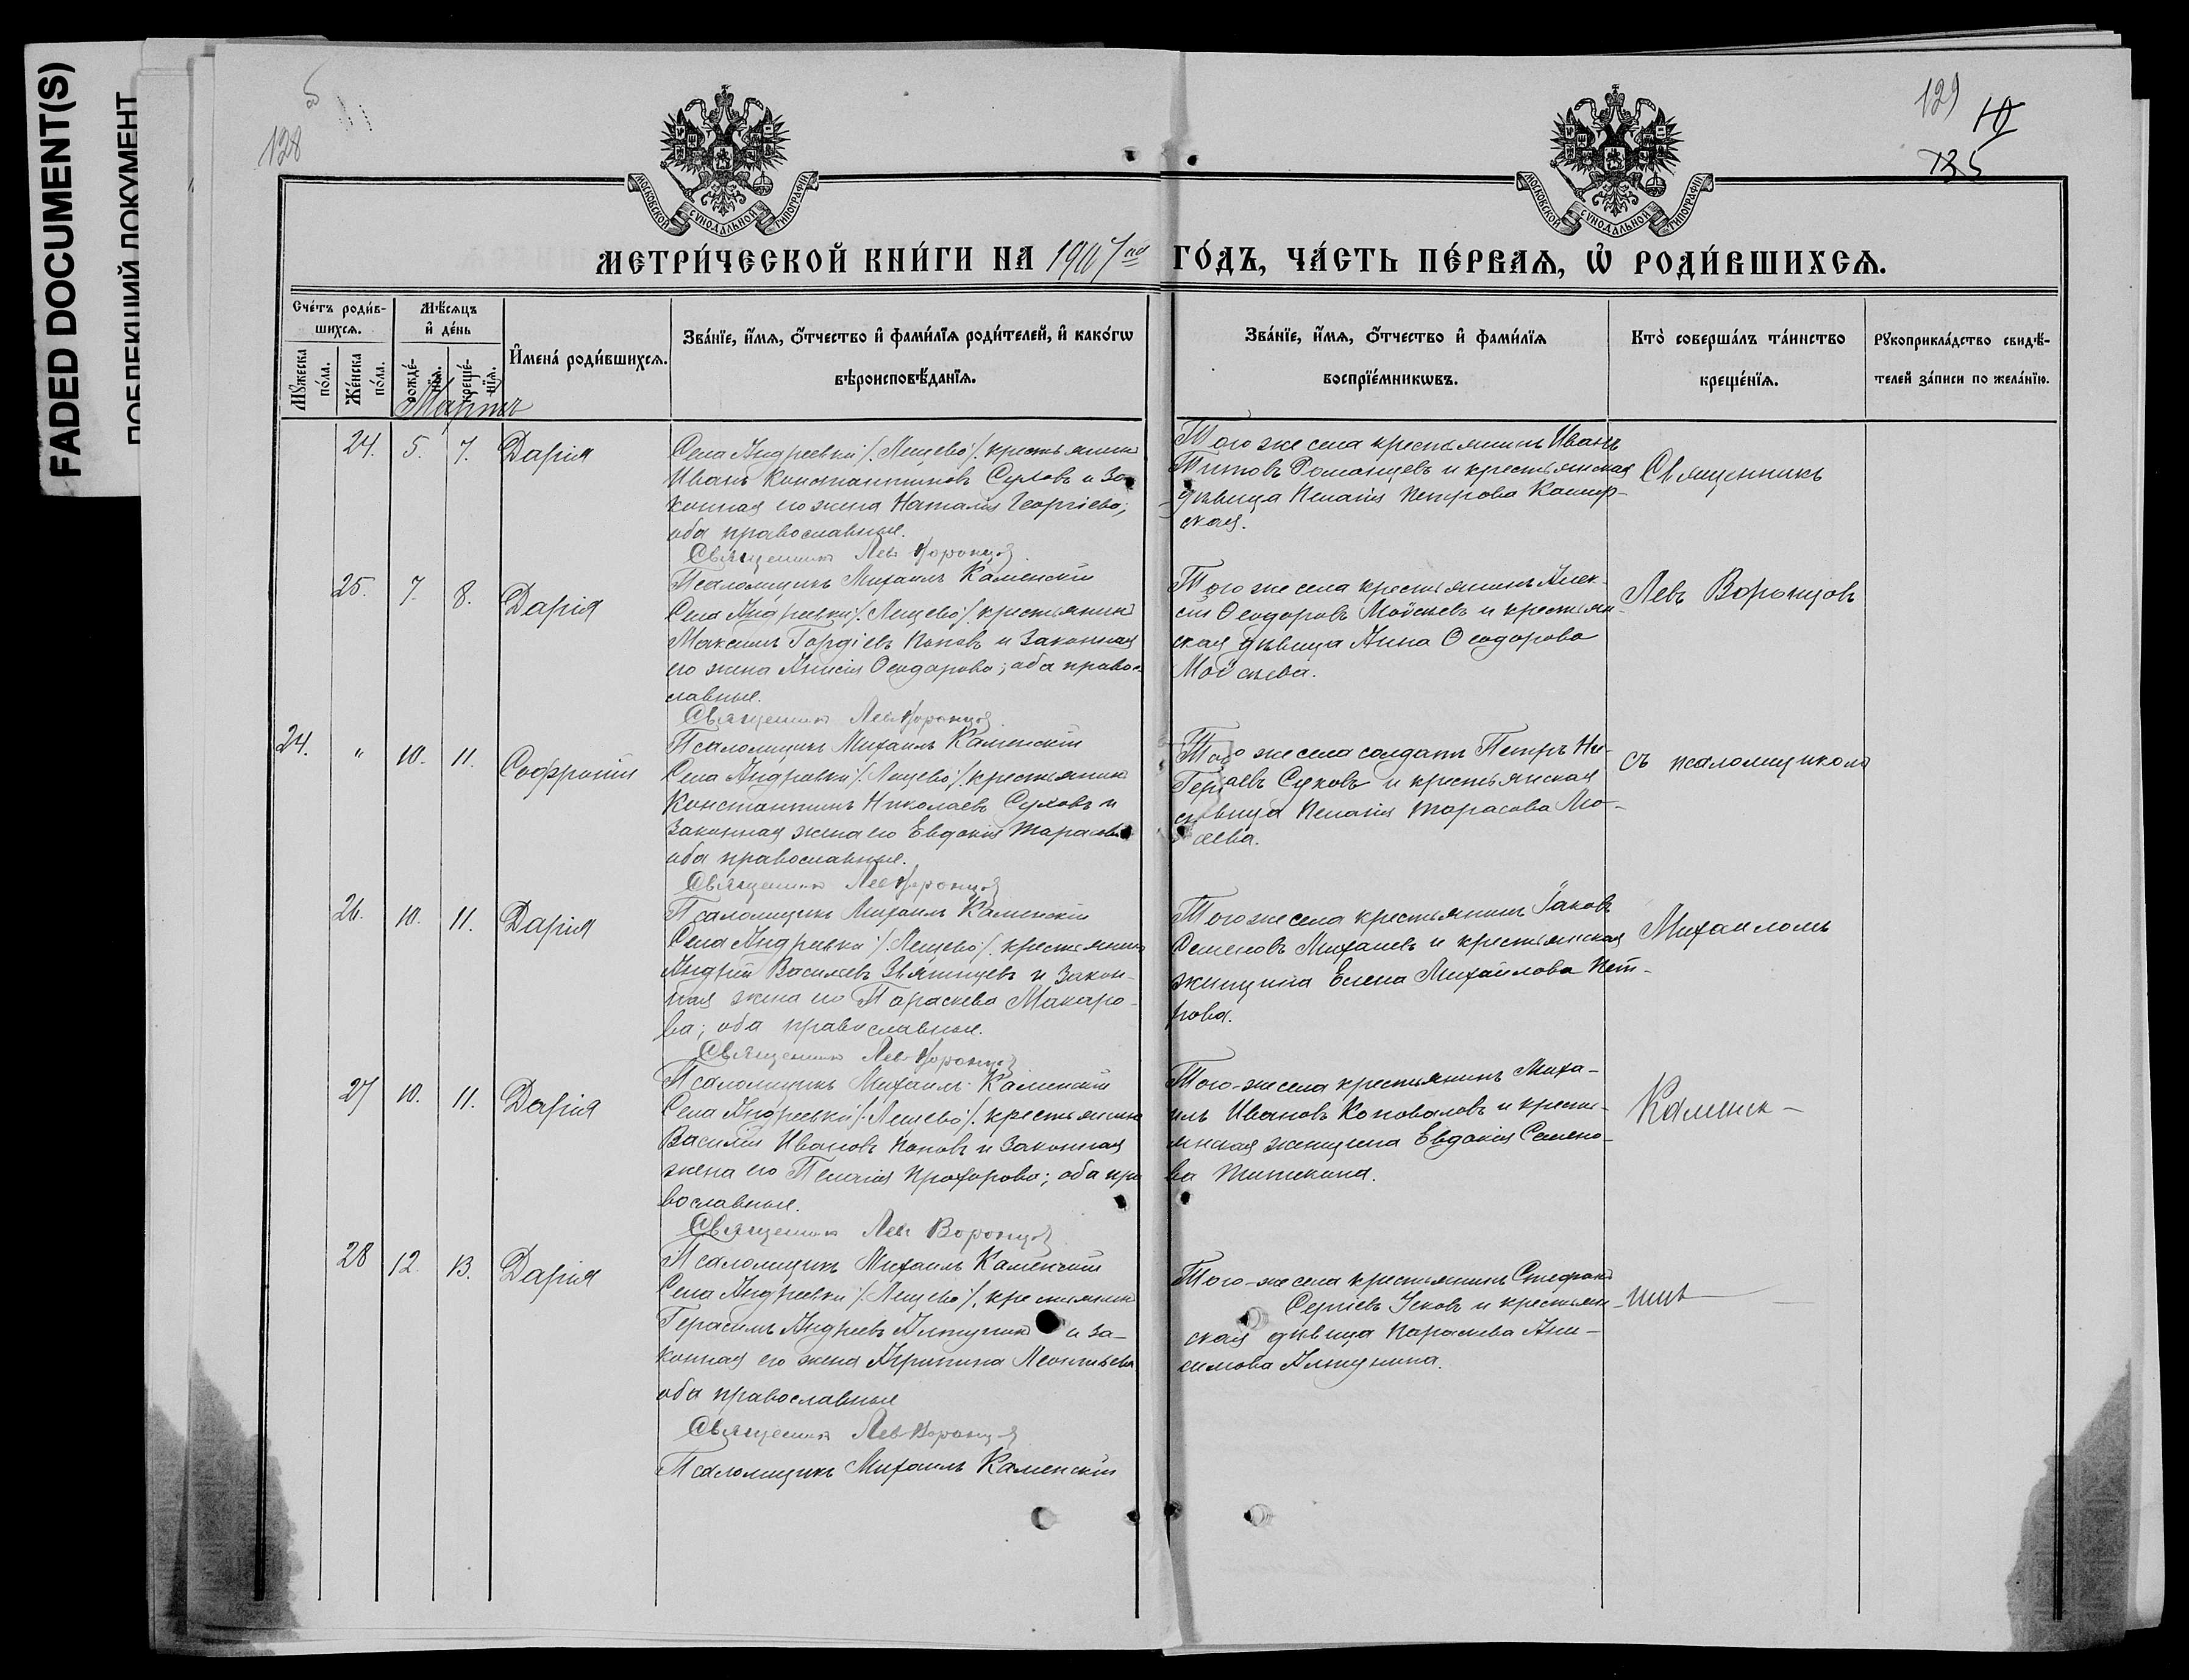 FADED DOCUMENT(S)
128
129
135
МОСКОВСКОЙ СѴНОДАЛЬНОЙ ТИПОГРАФІИ
МОСКОВСКОЙ СѴНОДАЛЬНОЙ ТИПОГРАФІИ
МЕТРИ́ЧЕСКОЙ КНИ́ГИ НА 1907 ГО́ДЪ, ЧА́СТЬ ПЕ́РВАѦ, Ѡ҆ РОДИ́ВШИХСѦ.
Сче́тъ роди́в-
шихсѧ.
Мꙋ́жеска по́ла.
Же́нска по́ла.
Мѣ́сѧцъ
и҆ де́нь
рожде́-нїѧ.
креще́-нїѧ.
И҆мена̀ роди́вшихсѧ.
Зва́нїе, и҆́мѧ, ѻ҆́тчество и҆ фами́лїѧ роди́телей, и҆ како́гѡ
вѣроисповѣ́данїѧ.
Зва́нїе, и҆́мѧ, ѻ҆́тчество и҆ фами́лїѧ
воспрїе́мникѡвъ.
Кто̀ соверша́лъ та́инство
креще́нїѧ.
Рꙋкоприкла́дство свидѣ́-
телей за́писи по жела́нїю.
Мартъ
24. 5. 7. Дарія
Села Андреевки /Лещево/ крестьянинъ
Иванъ Константиновъ Суховъ и за-
конная его жена Наталія Георгіева;
оба православные.
Священникъ Левъ Воронцов
Псаломщикъ Михаилъ Каменскій
Того же села крестьянинъ Иванъ
Титовъ Романцевъ и крестьянская
дѣвица Пелагія Петрова Кашир-
ская.
Священникъ
25. 7. 8. Дарія
Села Андреевки /Лещево/ крестьянинъ
Максимъ Гордіевъ Поповъ и законная
его жена Анисія Ѳеодорова; оба право-
славные.
Священникъ Левъ Воронцов
Псаломщикъ Михаилъ Каменскій
Того же села крестьянинъ Алек-
сій Ѳеодоровъ Мойсѣевъ и крестьян-
ская дѣвица Анна Ѳеодорова
Мойсѣева.
Левъ Воронцовъ
24. " 10. 11. Софроній
Села Андреевки /Лещево/ крестьянинъ
Константинъ Николаевъ Суховъ и
законная жена его Евдокія Тарасова
оба православные.
Священникъ Левъ Воронцов
Псаломщикъ Михаилъ Каменскій
Того же села солдатъ Петръ
Суховъ и крестьянская
дѣвица Пелагія Тарасова
съ псаломщикомъ
26. 10. 11. Дарія
Села Андреевки /Лещево/ крестьянинъ
Андрей Васильевъ Звягинцевъ и закон-
ная жена его Параскева Макаро-
ва; оба православные.
Священникъ Левъ Воронцов
Псаломщикъ Михаилъ Каменскій
Того же села крестьянинъ Іаковъ
Семеновъ Михалевъ и крестьянская
женщина Елена Михайлова Пет-
рова.
Михаиломъ
27 10. 11. Дарія
Села Андреевки /Лещево/ крестьянинъ
Василій Ивановъ Поповъ и законная
жена его Пелагія Прохорова; оба пра
вославные.
Священникъ Левъ Воронцов
Псаломщикъ Михаилъ Каменскій
Того-же села крестьянинъ Миха-
илъ Ивановъ Коноваловъ и кресть-
янская женщина Евдокія Семено-
ва Титикина.
Каменск-
28 12. 13. Дарія
Села Андреевки /Лещево/, крестьянинъ
Герасимъ Андреевъ Алтунинъ и за-
конная его жена Агрипина Леонтьева
оба православные
Священникъ Левъ Воронцов
Псаломщикъ Михаилъ Каменскій
Того-же села крестьянинъ Стефанъ
Сергіевъ Усковъ и крестьян-
ская дѣвица Параскева Ани-
симова Алтунина.
имъ